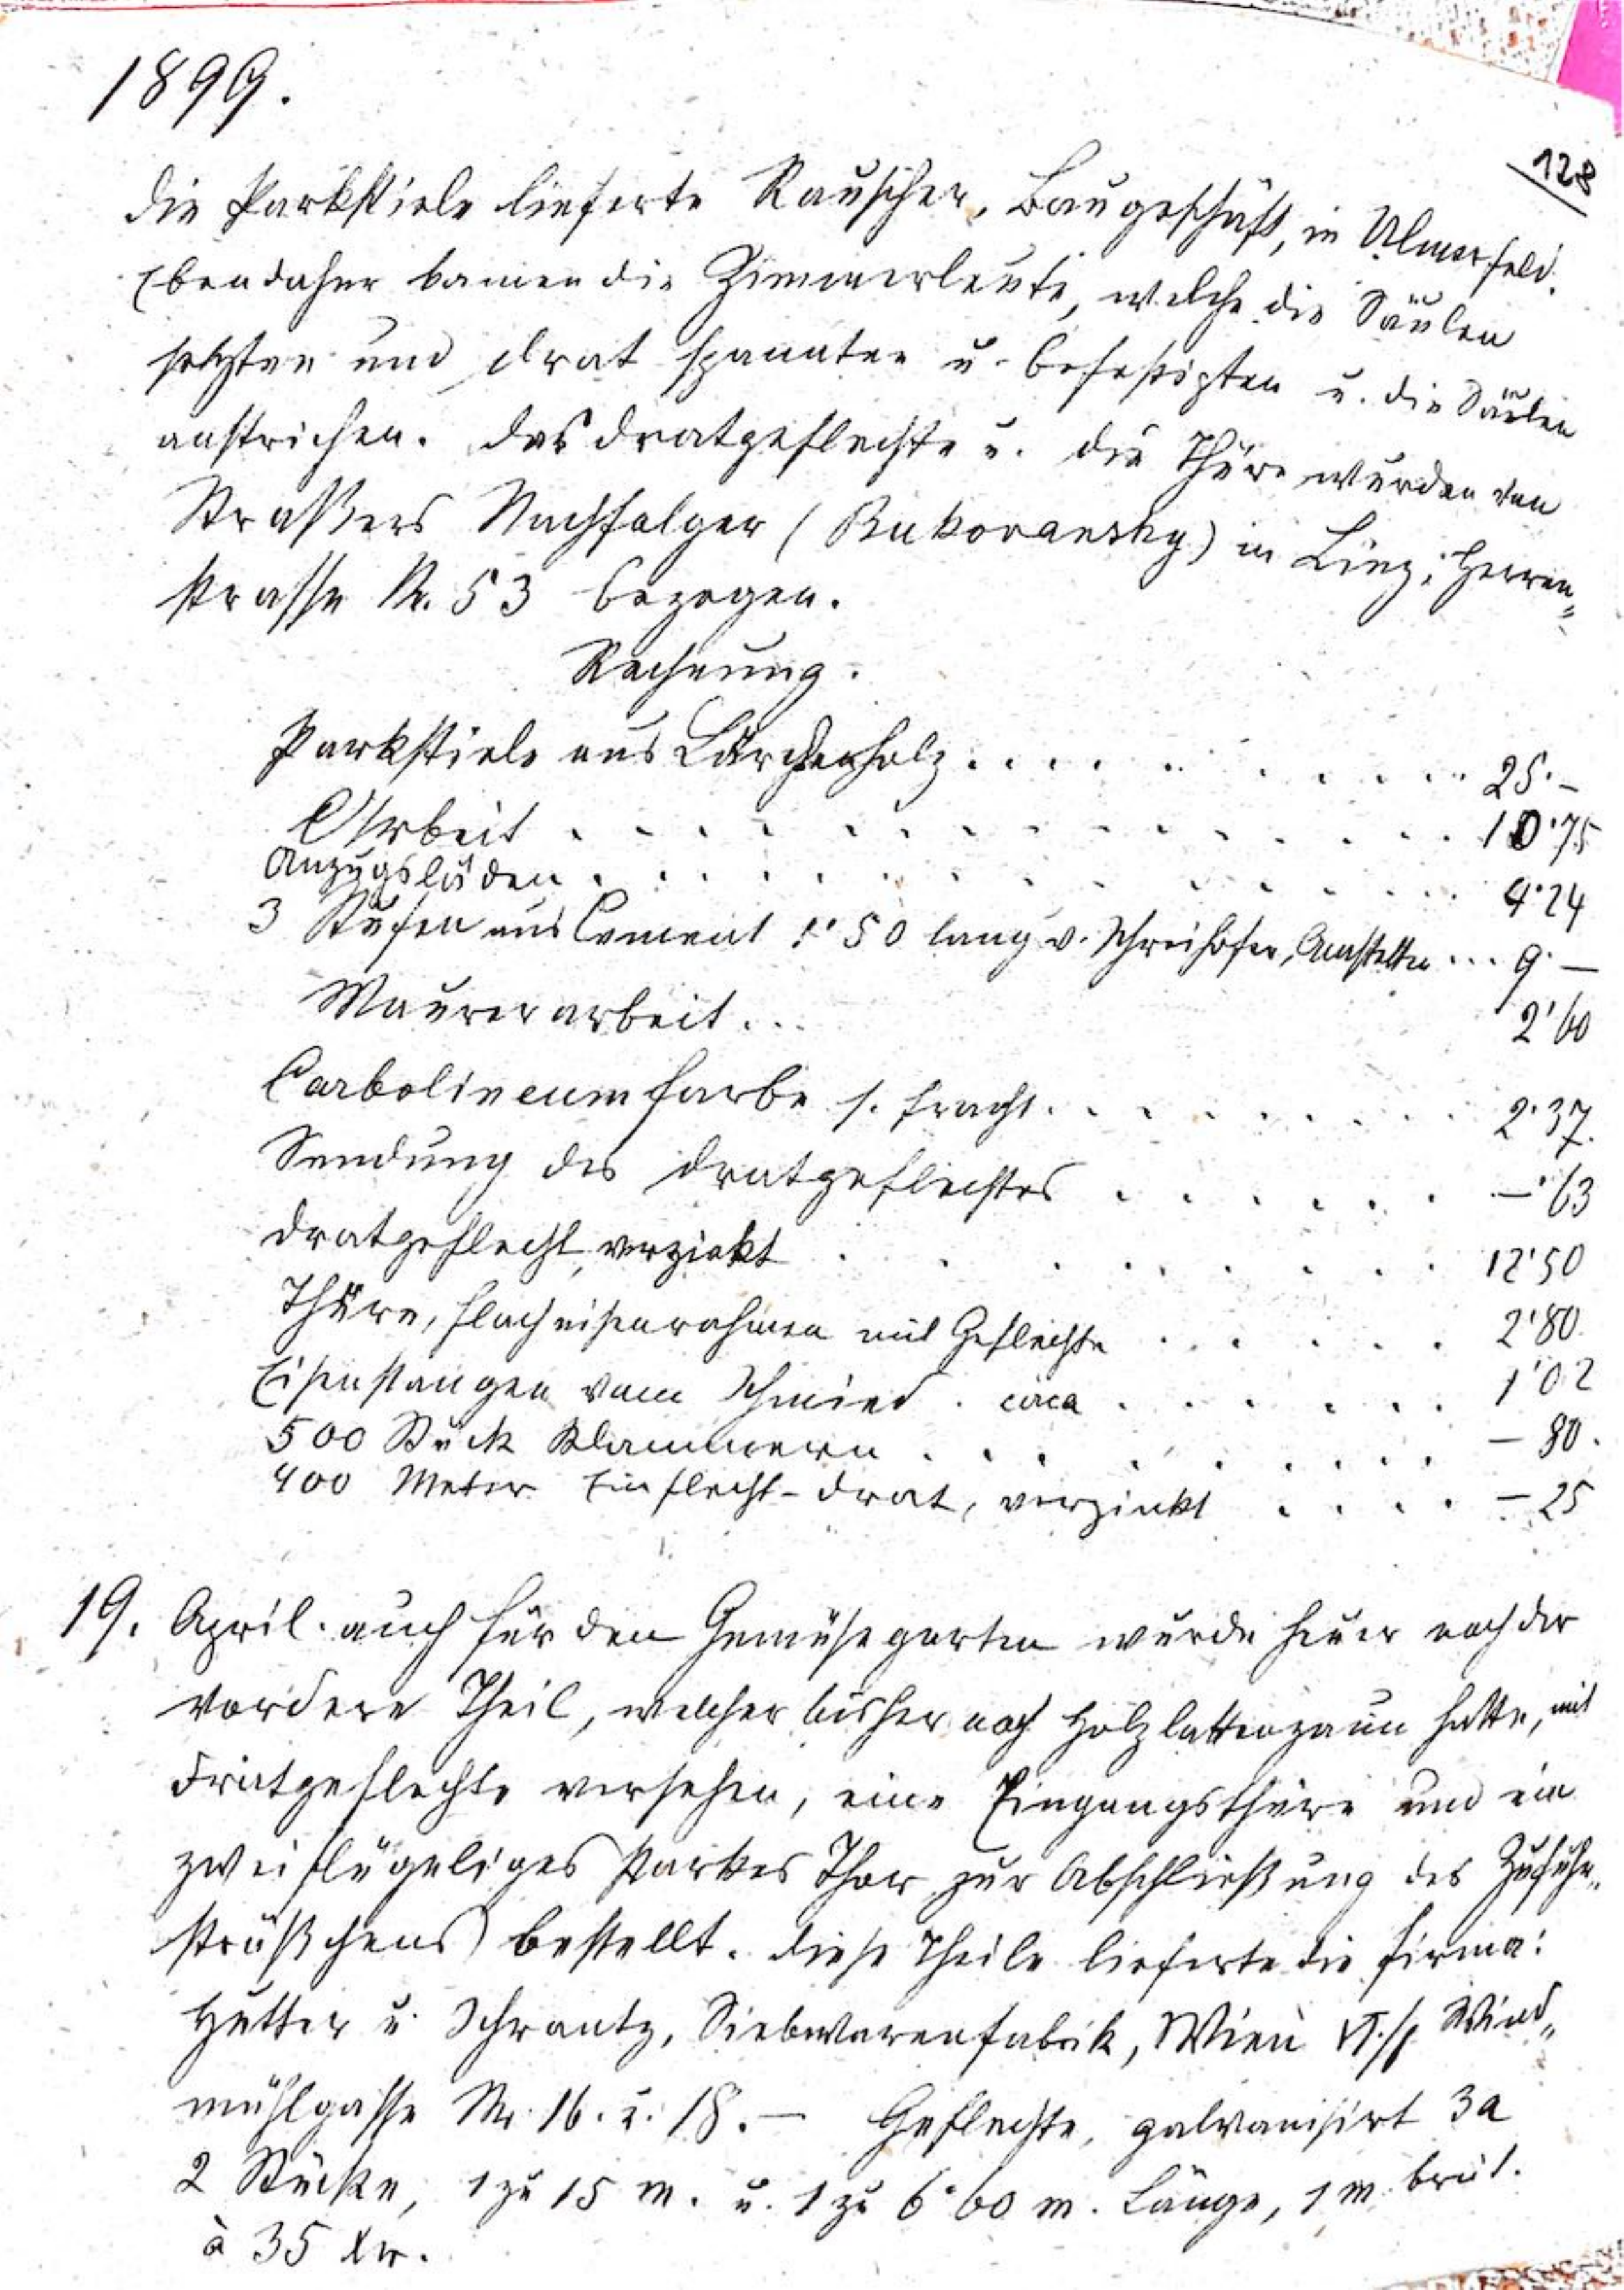 1899.
128
Die Parkstiele lieferte Rauscher, Baugeschäft, in Ulmerfeld.
Ebendaher kamen die Zimmerleute, welche die Säulen
setzten und Drat spannten u. befestigten u. die Säulen
anstrichen. Das Dratgeflechte u. die Thüre wurden von
Straßers Nachfolger (Bukovansky) in Linz, Herren„
strasse Nr. 53 bezogen.
Rechnung.
Parkstiele aus Lärchenholz . . . . . . . . . . 25·–
Arbeit . . . . . . . . . . . . . . 10·75
Anzugsläden . . . . . . . . . . . . 4·24
3 Stufen aus Cement 1·50 lang v. Schreihofer, Amstetten ... 9·–
Maurerarbeit ... 2·60
Carbolineumfarbe s. Fracht . . . . . . . . 2·37.
Sendung des Dratgeflechtes . . . . . . –·63
Dratgeflecht, verzinkt . . . . . . . . 12·50
Thüre, Flacheisenrahmen mit Geflechte . . . . . . 2·80.
Eisenstangen vom Schmied . circa . . . . . . 1·02
500 Stück Klammern . . . . . . . . . – 80.
400 Meter Einflecht-Drat, verzinkt . . . . – 25
19. April. Auch für den Gemüsegarten wurde heuer noch der
vordere Theil, welcher bisher noch Holzlattenzaun hatte, mit
Dratgeflechte versehen, eine Eingangsthüre und ein
zweiflügeliges starkes Thor zur Abschließung des Zufuhr„
sträßchens bestellt. Diese Theile lieferte die Firma:
Hutter u. Schrantz, Siebwarenfabrik, Wien VI./1 Wind„
mühlgasse Nr. 16. u. 18. – Geflechte, galvanisirt 3a
2 Stücke, 1 zu 15 m. u. 1 zu 6·60 m. Länge, 1 m. breit.
à 35 kr.